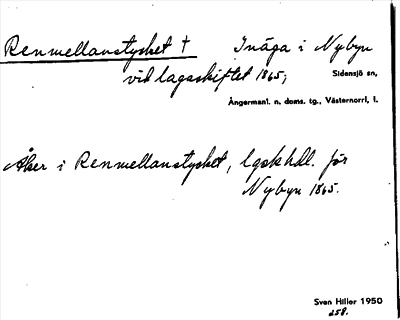 Renmellanstycket † Inäga i Nybyn
vid lagaskiftet 1865;
Sidensjö sn,
Ångermanl. n. doms. tg., Västernorrl, l.
Åker i Renmellanstycket, lgskhdl. för
Nybyn 1865.
Sven Hiller 1950
258.